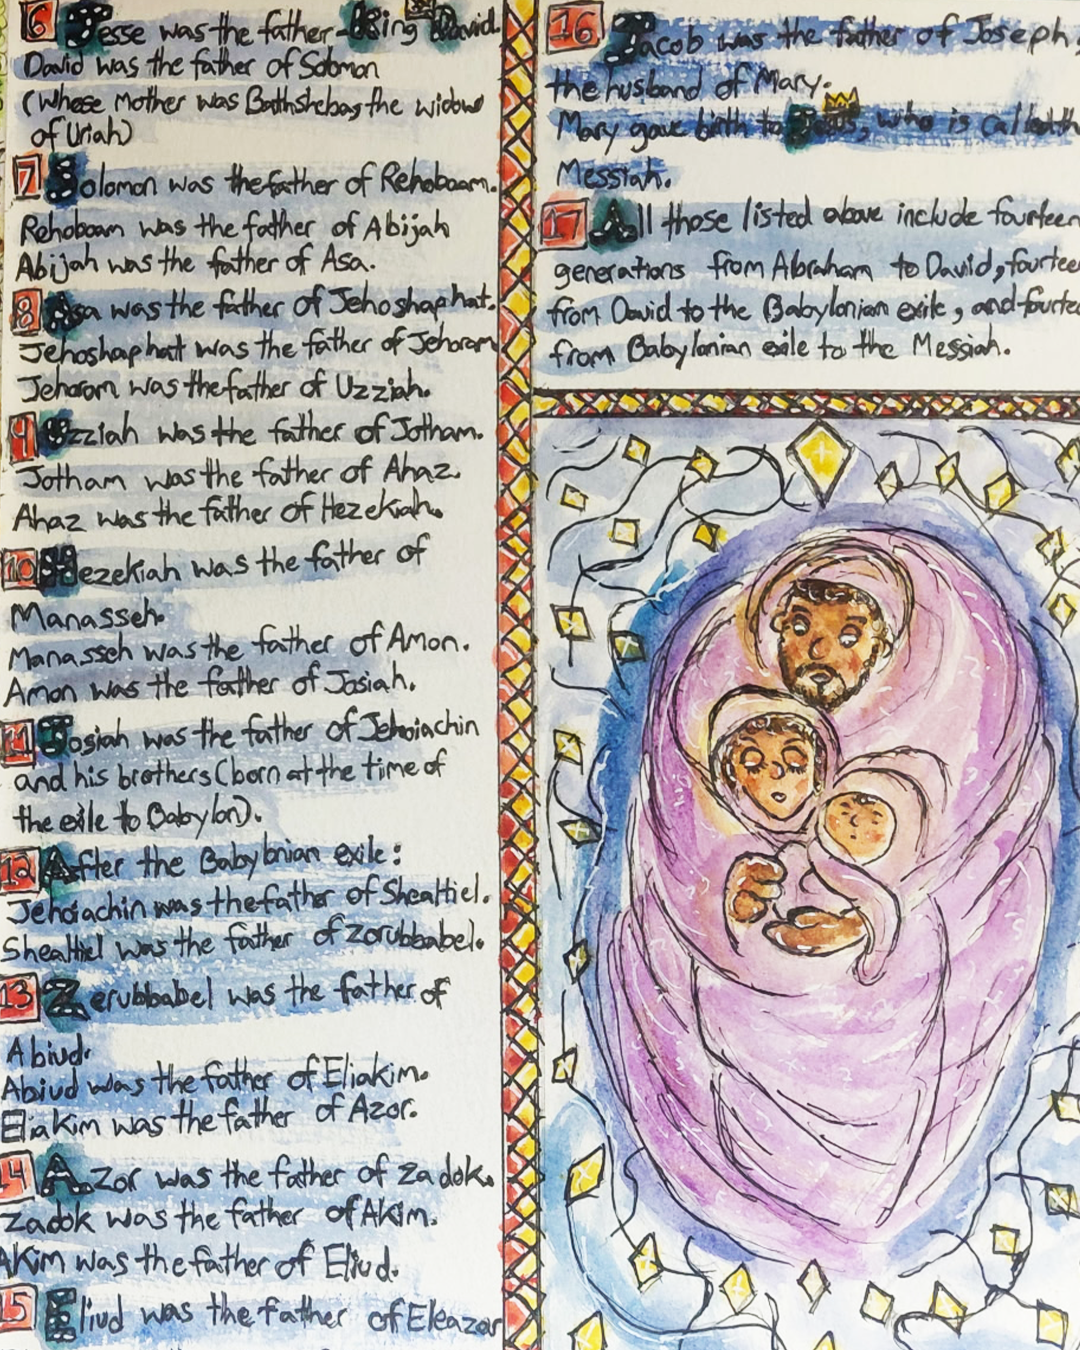 6 Jesse was the father - King David.
David was the father of Solomon
(Whose Mother was Bathsheba, the widow
of Uriah)
7 Solomon was the father of Rehoboam.
Rehoboam was the father of Abijah
Abijah was the father of Asa.
8 Asa was the father of Jehoshaphat.
Jehoshaphat was the father of Jehoram
Jehoram was the father of Uzziah.
9 Uzziah was the father of Jotham.
Jotham was the father of Ahaz.
Ahaz was the father of Hezekiah.
10 Hezekiah was the father of
Manasseh.
Manasseh was the father of Amon.
Amon was the father of Josiah.
11 Josiah was the father of Jehoiachin
and his brothers (born at the time of
the exile to Babylon).
12 After the Babylonian exile:
Jehoiachin was the father of Shealtiel.
Shealtiel was the father of Zorubbabel.
13 Zerubbabel was the father of
Abiud.
Abiud was the father of Eliakim.
Eliakim was the father of Azor.
14 Azor was the father of Zadok.
Zadok was the father of Akim.
Akim was the father of Eliud.
15 Eliud was the father of Eleazar
16 Jacob was the father of Joseph,
the husband of Mary.
Mary gave birth to Jesus, who is called th
Messiah.
17 All those listed above include fourteen
generations from Abraham to David, fourtee
from David to the Babylonian exile, and fourte
from Babylonian exile to the Messiah.